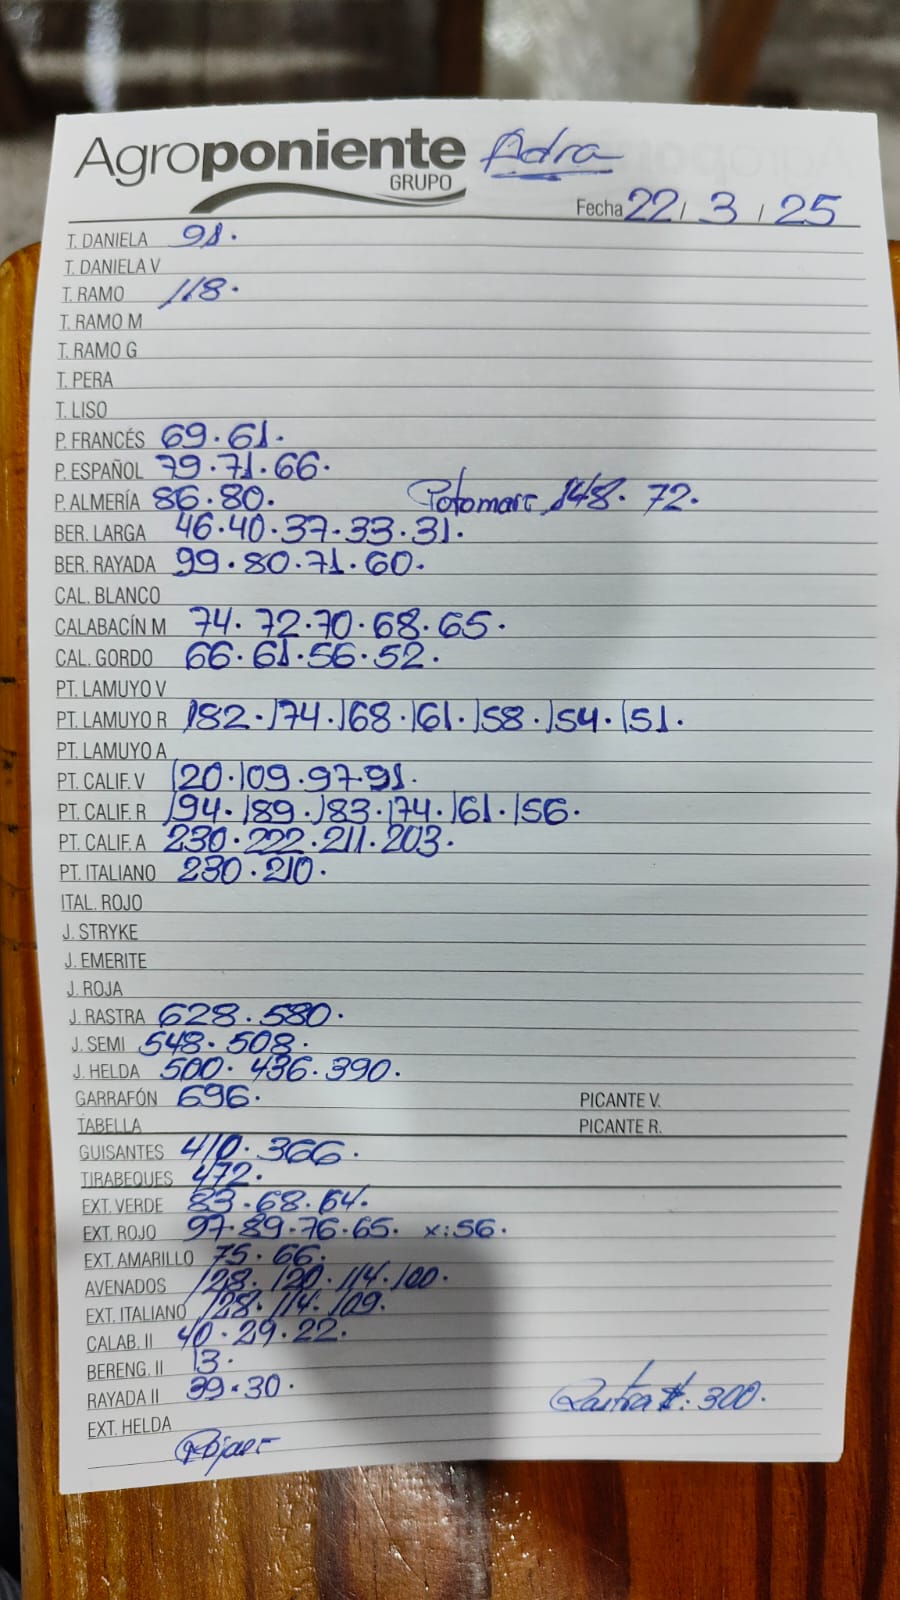 Agroponiente Adra
GRUPO
Fecha 22 / 3 / 25
T. DANIELA 91.
T. DANIELA V
T. RAMO 118.
T. RAMO M
T. RAMO G
T. PERA
T. LISO
P. FRANCÉS 69. 61.
P. ESPAÑOL 79. 71. 66.
P. ALMERÍA 86. 80. 148. 72.
BER. LARGA 46. 40. 37. 33. 31.
BER. RAYADA 99. 80. 71. 60.
CAL. BLANCO
CALABACÍN M 74. 72. 70. 68. 65.
CAL. GORDO 66. 61. 56. 52.
PT. LAMUYO V
PT. LAMUYO R 182. 174. 168. 161. 158. 154. 151.
PT. LAMUYO A
PT. CALIF. V 120. 109. 97. 91.
PT. CALIF. R 194. 189. 183. 174. 161. 156.
PT. CALIF. A 230. 222. 211. 203.
PT. ITALIANO 230. 210.
ITAL. ROJO
J. STRYKE
J. EMERITE
J. ROJA
J. RASTRA 628. 580.
J. SEMI 548. 508.
J. HELDA 500. 436. 390.
GARRAFÓN 696. PICANTE V.
TABELLA PICANTE R.
GUISANTES 410. 366.
TIRABEQUES 472.
EXT. VERDE 83. 68. 64.
EXT. ROJO 97. 89. 76. 65. x: 56.
EXT. AMARILLO 75. 66.
AVENADOS 128. 120. 114. 100.
EXT. ITALIANO 128. 114. 109.
CALAB. II 40. 29. 22.
BERENG. II 13.
RAYADA II 39. 30. Rastra : 300.
EXT. HELDA